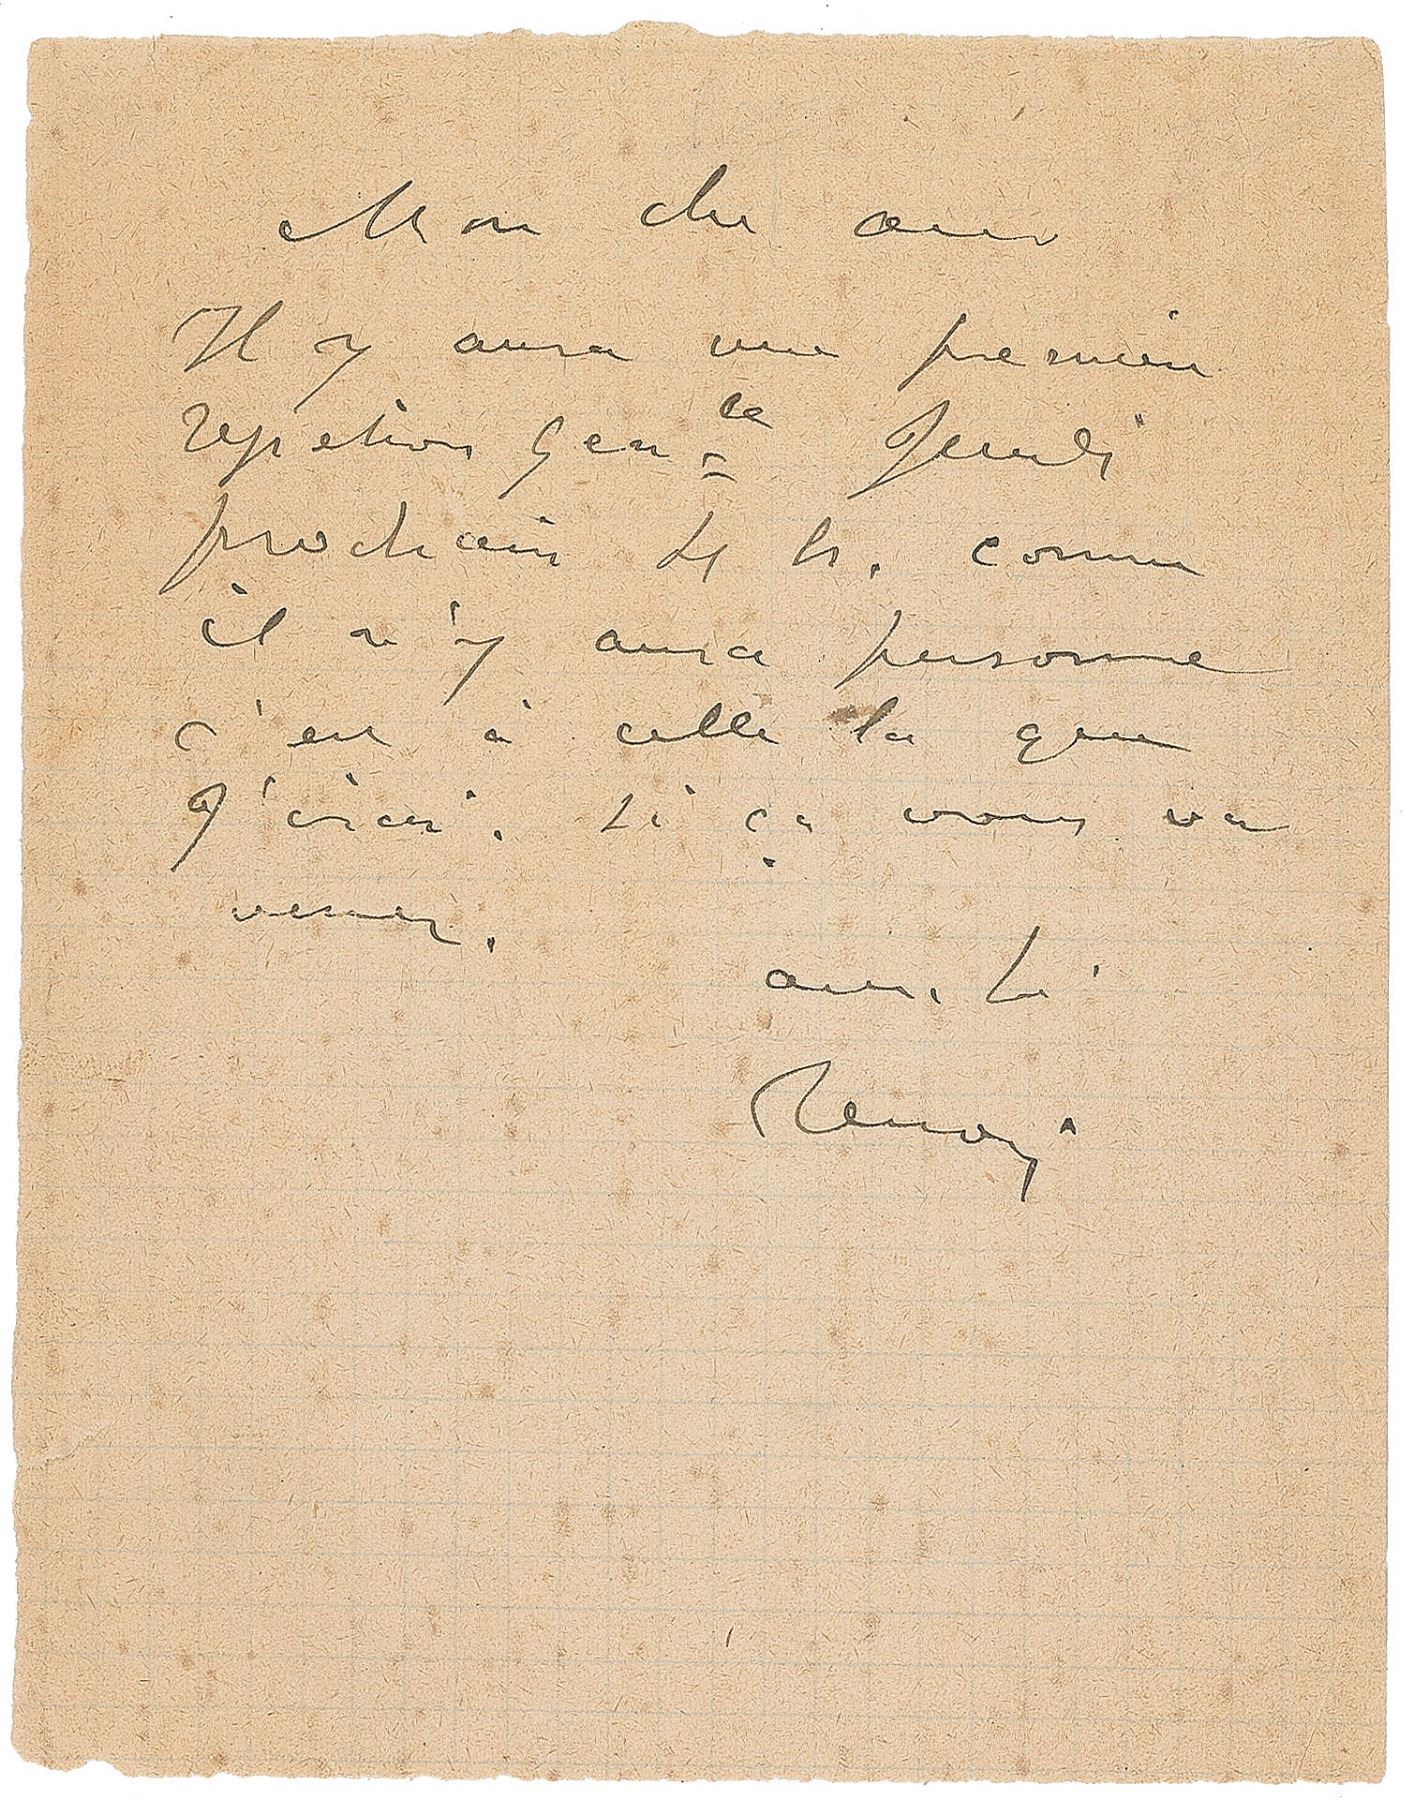 Mon cher ami
Il y aura une première
repetition Genle Jeudi
prochain 4 h. comme
il n'y aura personne
c'est à celle la que
J'irai. si ça vous va
venez.
ami.
Renoir